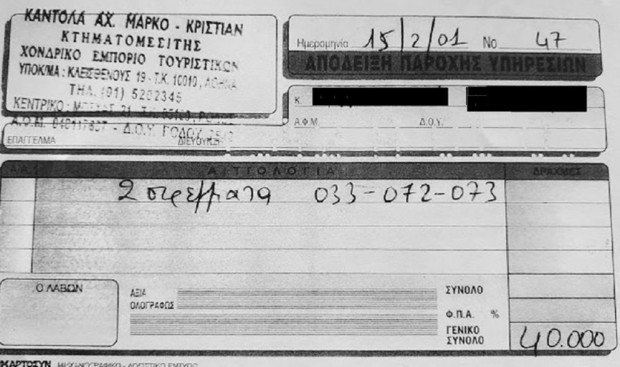 ΚΑΝΤΟΛΑ ΑΧ. ΜΑΡΚΟ - ΚΡΙΣΤΙΑΝ
ΚΤΗΜΑΤΟΜΕΣΙΤΗΣ
ΧΟΝΔΡΙΚΟ ΕΜΠΟΡΙΟ ΤΟΥΡΙΣΤΙΚΩΝ
ΥΠΟΚ/ΜΑ: ΚΛΕΙΣΘΕΝΟΥΣ 19 - Τ.Κ. 10010, ΑΘΗΝΑ
ΤΗΛ. (01) 5202345
ΚΕΝΤΡΙΚΟ:
Α.Φ.Μ. - Δ.Ο.Υ. ΡΟΔΟΥ
ΕΠΑΓΓΕΛΜΑ ΔΙΕΥΘΥΝΣΗ
Ημερομηνία 15/2/01 No 47
ΑΠΟΔΕΙΞΗ ΠΑΡΟΧΗΣ ΥΠΗΡΕΣΙΩΝ
Κ.
Α.Φ.Μ. Δ.Ο.Υ.
ΑΙΤΙΟΛΟΓΙΑ ΔΡΑΧΜΕΣ
2 στρέμματα 033-072-073
Ο ΛΑΒΩΝ
ΑΞΙΑ
ΟΛΟΓΡΑΦΩΣ
ΣΥΝΟΛΟ
Φ.Π.Α. %
ΓΕΝΙΚΟ
ΣΥΝΟΛΟ 40.000